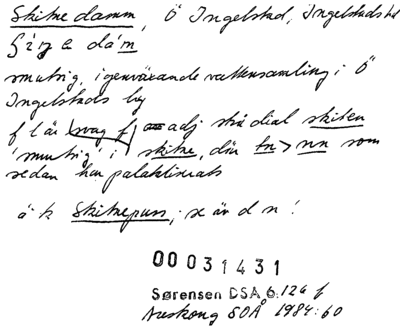 Skitne damm, Ö Ingelstad, Ingelstads hd
dá´m
smutsig, igenväxande vattensamling i Ö
Ingelstads by
f l är svag f adj skå dial skiten
'smutsig' i skitne, där tn > nn som
sedan har palatiserats
ä k Skitnepuss, se är d n!
00031431
Sørensen DSÅ 6:126 f
Auskong SOÅ 1984:60